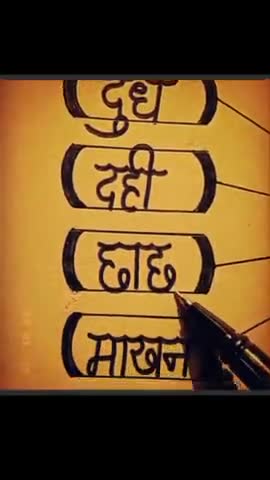 दुध
दही
छाछ
माखन